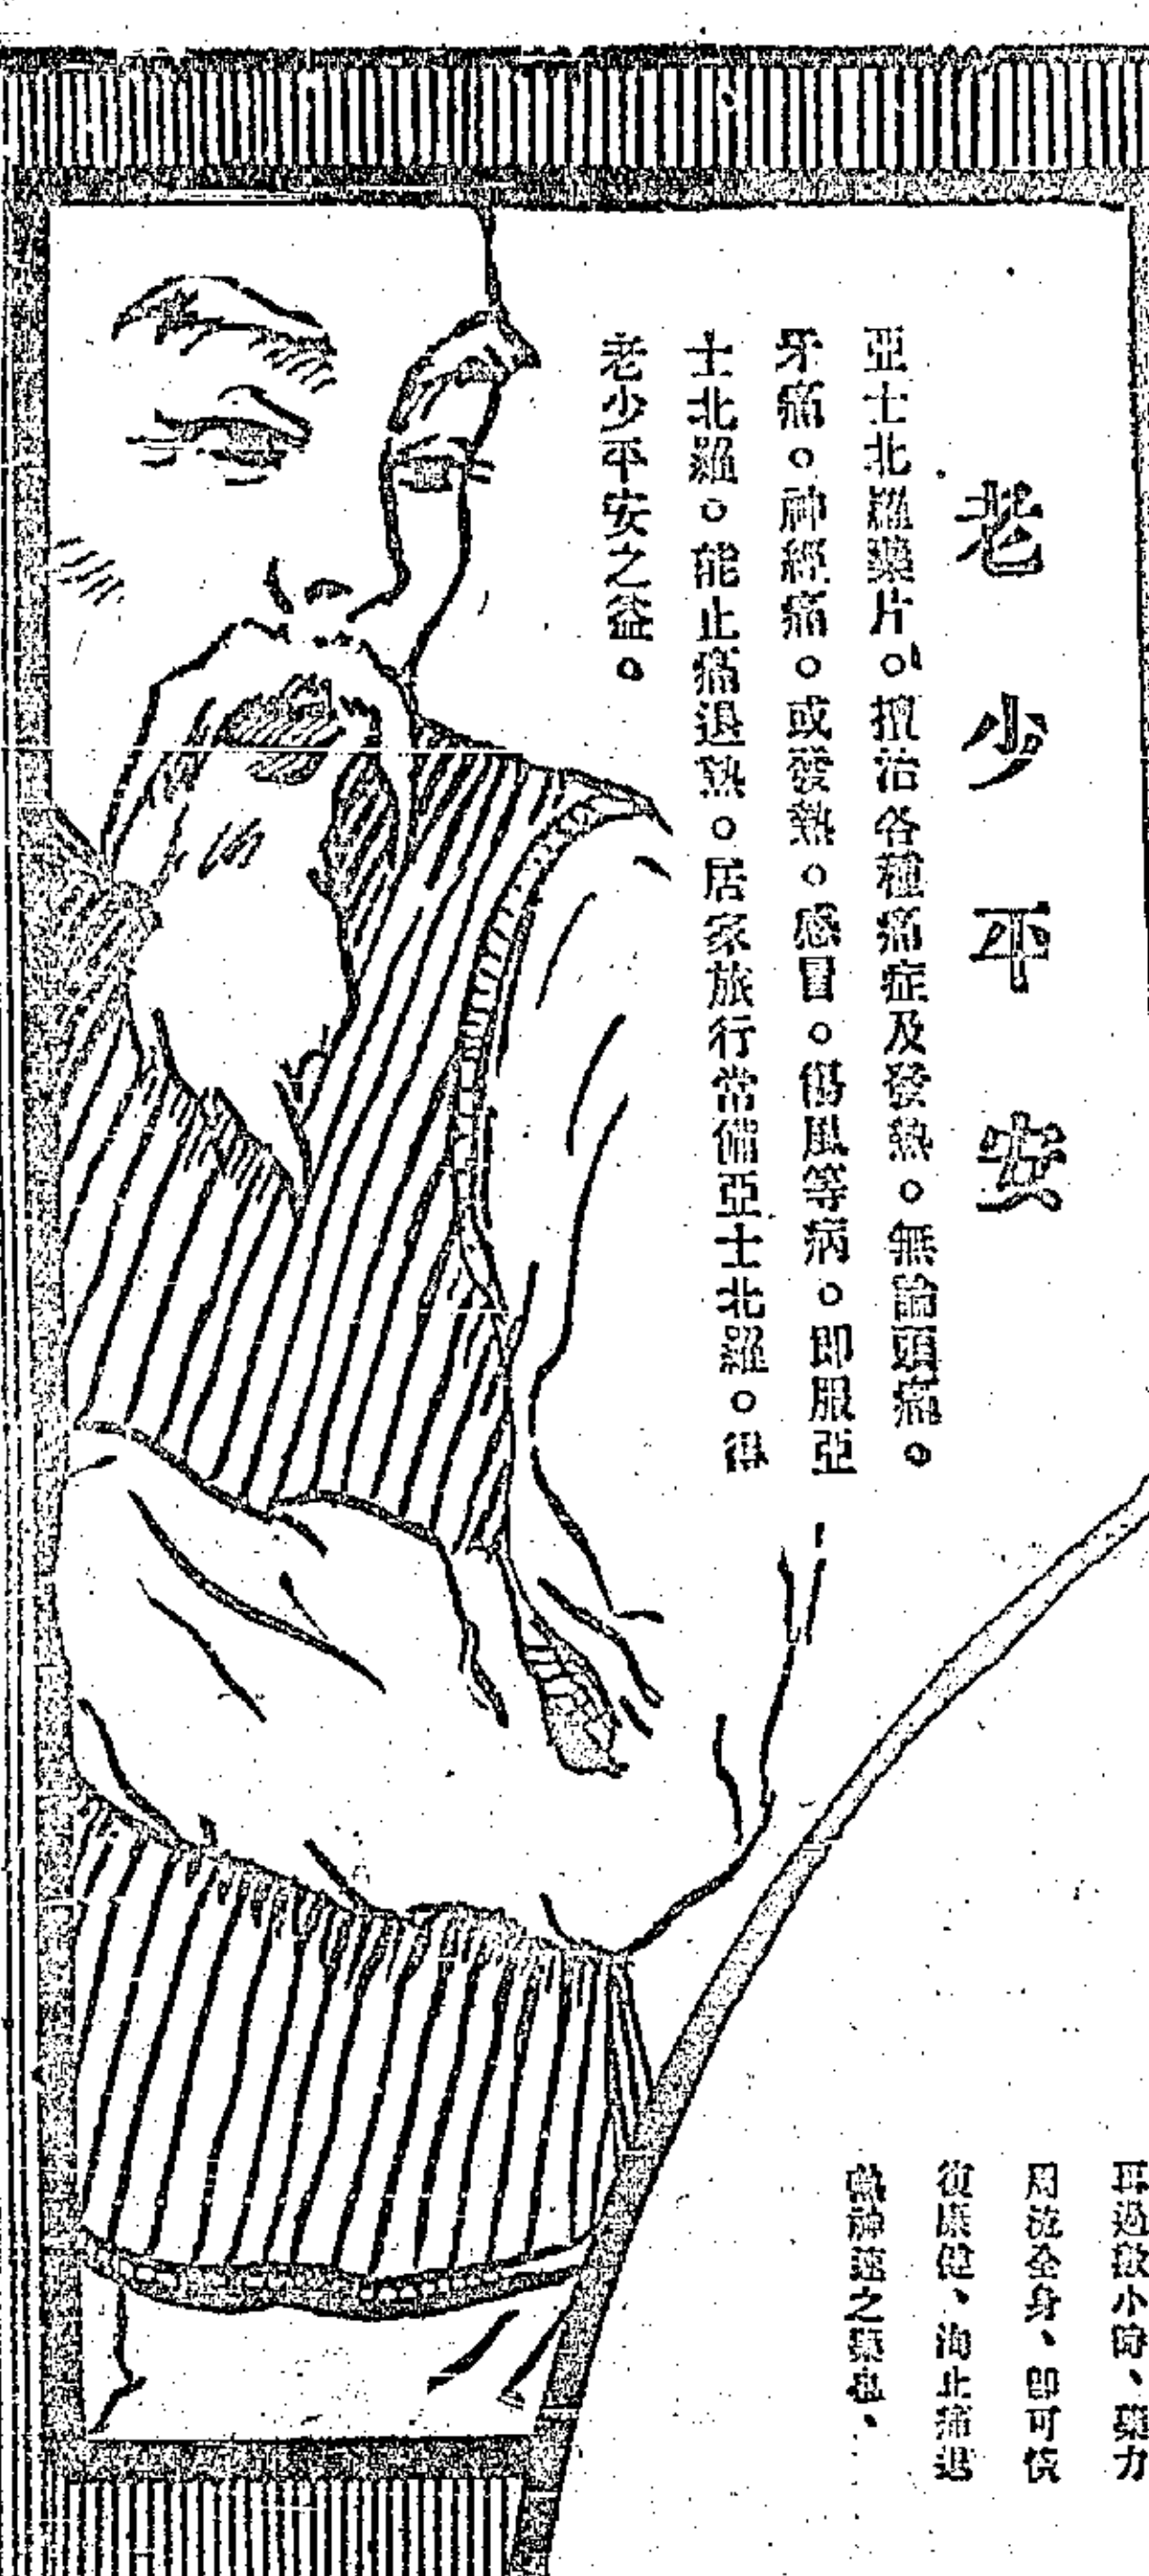 老少平安
亞士北羅藥片。擅治各種痛症及發熱。無論頭痛。
牙痛。神經痛。或發熱。感冒。傷風等病。即服亞
士北羅。能止痛退熱。居家旅行常備亞士北羅。得
老少平安之益。
再過數小時、藥力
周流全身、即可恢
復康健、洵止痛退
熱神速之藥也、